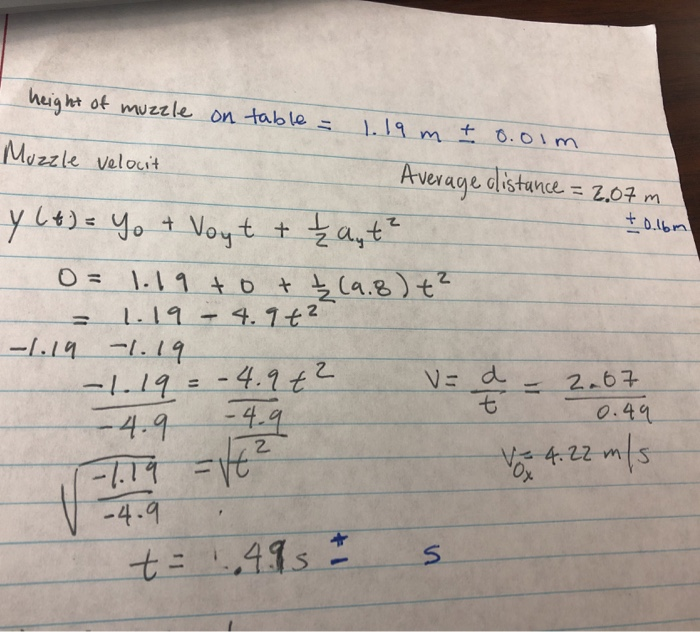 height of muzzle on table = 1.19 m ± 0.01m
Muzzle velocit
Average distance = 2.07 m
± 0.16m
y(t) = y₀ + V₀yt + ½ ayt²
0 = 1.19 + 0 + ½(9.8)t²
= 1.19 - 4.9t²
-1.19 -1.19
-1.19/-4.9 = -4.9t²/-4.9
√(-1.19/-4.9) = √t²
t = .49s ± s
V = d/t = 2.07/0.49
V₀x = 4.22 m/s